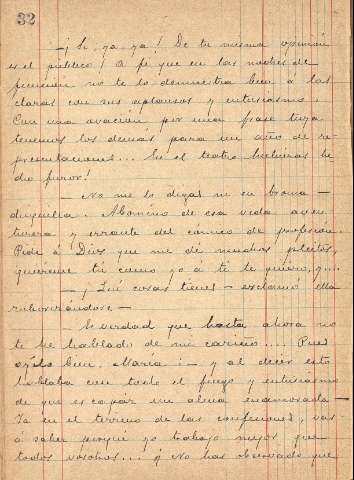 32
— ¡Si, ya, ya! De tu misma opinión
es el público! A fe que en las noches de
funcion no te lo demuestra bien a las
claras con sus aplausos y entusiasmo.
Con una ovación por una frase tuya
tenemos los demás para un año de re-
presentaciones... En el teatro
de furor!
— No me lo digas ni en broma —
Abomino de esa vida aven
turera y errante del cómico de profesion.
Pide á Dios que me dé muchos pleitos,
quiereme tú como yo á ti te quiero, y...
— ¡Qué cosas tienes! — exclamó ella
ruborizandose —
Es verdad que hasta ahora no
te he hablado de mi cariño.... Pues
oyelo bien, María: — y al decir esto
hablaba con todo el fuego y entusiasmo
de que es capaz un alma enamorada —
Ya en el terreno de las confesiones, vas
á saber porque yo trabajo mejor que
todos vosotros... ¿No has observado que